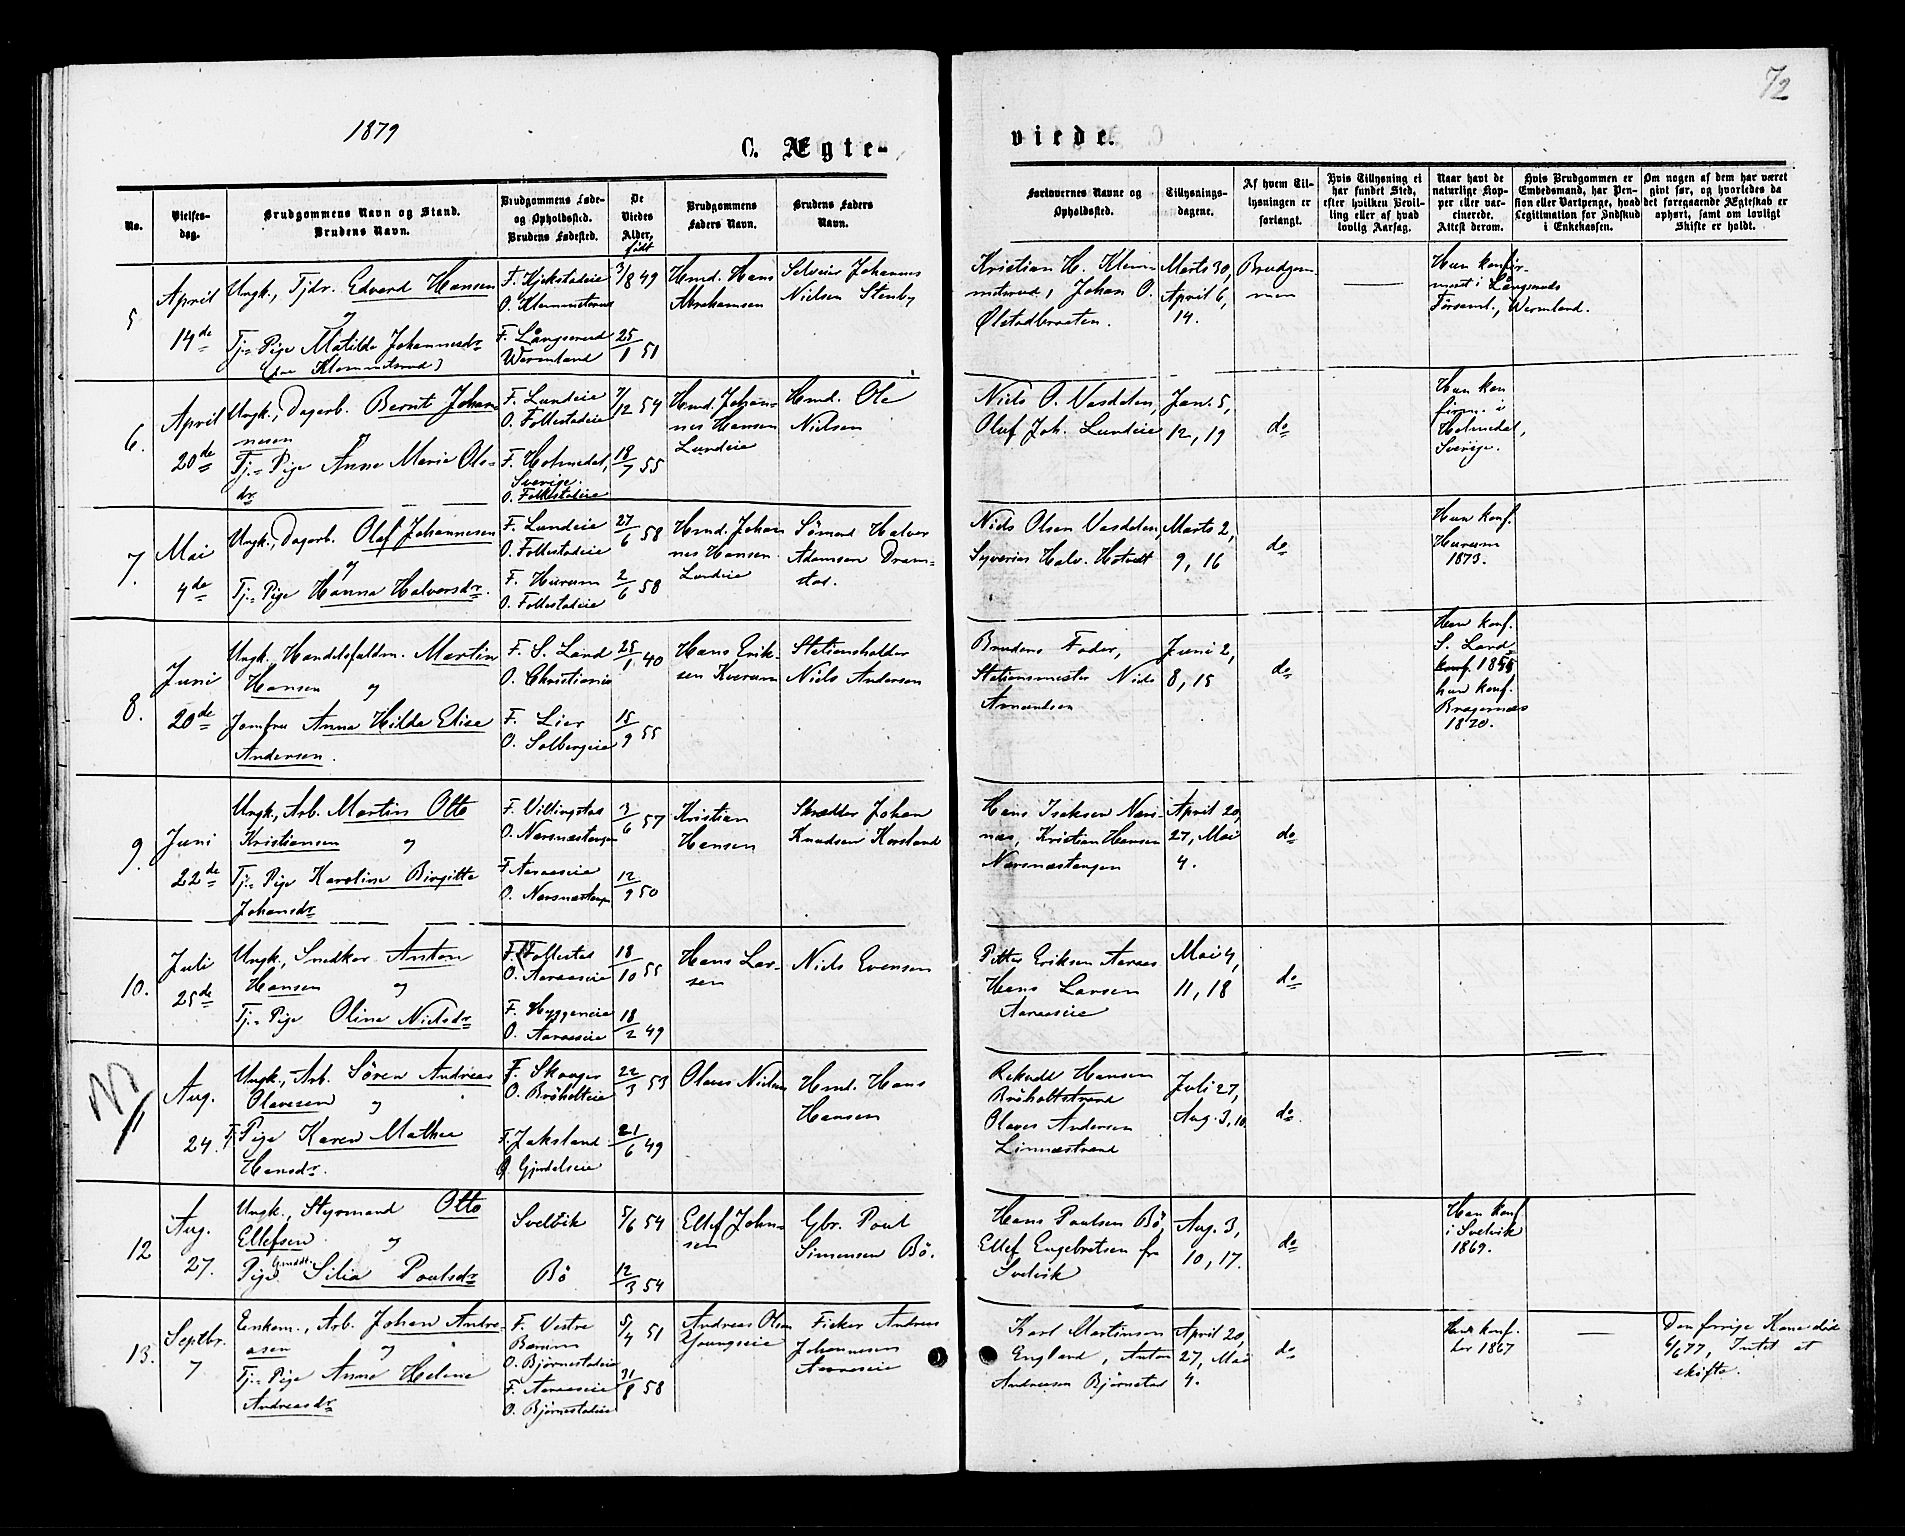 72
1879
C. Ægte-
viede.
No.
Vielses-
dag.
Brudgommens Navn og Stand.
Brudens Navn.
Brudgommens Føde-
og Opholdssted.
Brudens Fødested.
De
Viedes
Alder,
født
Brudgommens
Faders Navn.
Brudens Faders
Navn.
Forlovernes Navne og
Opholdssted.
Tillysnings-
dagene.
Af hvem Til-
lysningen er
forlangt.
Hvis Tillysning ei
har fundet Sted,
efter hvilken Bevil-
ling eller af hvad
lovlig Aarsag.
Naar havt de
naturlige Kop-
per eller vac-
cinerede.
Attest derom.
Hvis Brudgommen er
Embedsmand, har Pen-
sion eller Vartpenge, hvad
Legitimation for Indskud
i Enkekassen.
Om nogen af dem har været
givt før, og hvorledes da
det foregaaende Ægteskab er
ophørt, samt om lovligt
Skifte er holdt.
5
April
14de
Ungk., Tjdr. Edvard Hansen
og
Tj.- Pige Matilde Johannesdr
F. Kjekstadeie
O. Klemmetsrud
F. Långserud
Wermland
3/8 49
25/1 51
Hmd. Hans
Abrahamsen
Johannes
Nielsen Stenby
Kristian H. Klem-
metsrud, Johan O.
Ølstadbraaten.
Marts 30,
April 6,
14.
Brudgom-
men
—
Hun konfir-
meret i Långseruds
Församl., Wermland.
6.
April
20de
Ungk., Dagarb. Bernt Johan-
nesen og
Tj.- Pige Anne Marie Ols-
dr
F. Lundeie
O. Follestadeie
F. Holmedal,
Sverige.
O. Follestadeie
7/12 54
18/7 55
Hmd. Johan-
nes Hansen
Lundeie
Hmd. Ole
Nielsen
Niels O. Vasdalen,
Oluf Joh. Lundeie
Jan. 5,
12, 19
do
Hun kon
firm. i
Holmedal,
Sverige.
7.
Mai
4de
Ungk., Dagarb. Olaf Johannesen
og
Tj.- Pige Hanna Halvorsdr.
F. Lundeie
O. Follestadeie
F. Hurum
O. Follestadeie
27/6 58
2/6 58
Hmd. Johan
nes Hansen
Lundeie
Sømand Halvor
Adamsen Dram-
stad.
Niels Olsen Vasdalen,
Syverin Halv. Hotvedt
Marts 2,
9, 16
do
Hun konf.
Hurum
1873.
8.
Juni
20de
Ungk. Handelsfuldm. Martin
Hansen og
Jomfru Anna Hilda Elise
Andersen.
F. S. Land
O. Christiania
F. Lier
O. Solbergeie
25/1 40
15/9 55
Hans Erik-
sen Kverum
Stationsholder
Niels Andersen
Brudens Fader,
Stationsmester Niels
Amundsen
Juni 2,
8, 15
do
Han konf.
S. Land
konf. 1855
hun konf.
Bragernæs
1870.
9.
Juni
22de
Ungk., Arb. Martin Otto
Kristiansen og
Tj.- Pige Karoline Birgitte
Johansdr
F. Villingstad
O. Nærsnæstangen
F. Aaraaseie
O. Nærsnæstangen
3/6 57
12/9 50
Kristian
Hansen
Skrædder Johan
Knudsen Korslund
Hans Isaksen Nærs-
næs, Kristian Hansen
Nærsnæstangen
April 20,
27, Mai
4.
do
10.
Juli
25de
Ungk., Snedker Anton
Hansen og
Tj.- Pige Oline Nielsdr
F. Follestad
O. Aaraaseie
F. Hyggeneie
O. Aaraaseie
18/10 55
18/2 49
Hans Lar-
sen
Niels Evensen
Petter Eriksen Aaraas
Hans Larsen
Aaraaseie
Mai 4,
11, 18
do
11
Aug.
24.
Ungk., Arb. Søren Andreas
Olavesen og
Tj. Pige Karen Mathea
Hansdr.
F. Skoger
O. Brøholteie
F. Jaksland
O. Gjerdalseie
22/3 53
21/6 49
Olaus Nielsen
Hmd. Hans
Hansen
Hansen
Brøholtstrand
Olaves Andersen
Linnæstrand
Juli 27,
Aug. 3, 10
do.
12
Aug.
27.
Ungk., Styrmand Otto
Ellefsen og
Pige Silia Poulsdr
Svelvik
Bø
5/6 54
12/3 54
Ellef John-
sen
Gbr. Poul
Simensen Bø.
Hans Poulsen Bø,
Ellef Engebretsen fra
Svelvik
Aug. 3,
10, 17.
do
Han konf
i Svelvik
1869.
13.
Septbr.
7
Enkem., Arb. Johan Andre-
asen og
Tj.- Pige Anne Helene
Andreasdr
F. Vestre
Bærum
O. Bjørnestadeie
F. Aaraaseie
O. Bjørnestadeie
5/4 51
31/8 58
Andreas Olsen
Youngseie
Fisker Andreas
Johannesen
Aaraaseie
Karl Martinsen
England, Anton
Andersen Bjørnstad
April 20,
27, Mai
4.
do
Han konf.
her 1867
—
Den forrige Kone død
6/6 77, Intet at
skifte.